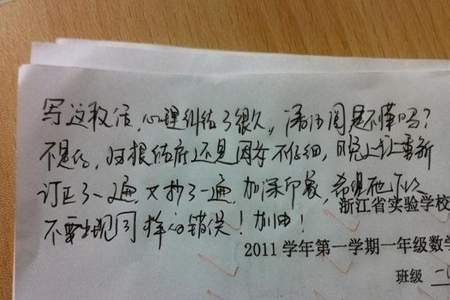 写这段话，心理纠结了很久，漏泪因是不懂吗？
不是的，归根结底还是因为不仔细，昨晚上让重新
订正了一遍，又抄了一遍，加深印象，希望他下次
不要出现同样的错误！加油！
浙江省实验学校
2011学年第一学期一年级数学
班级